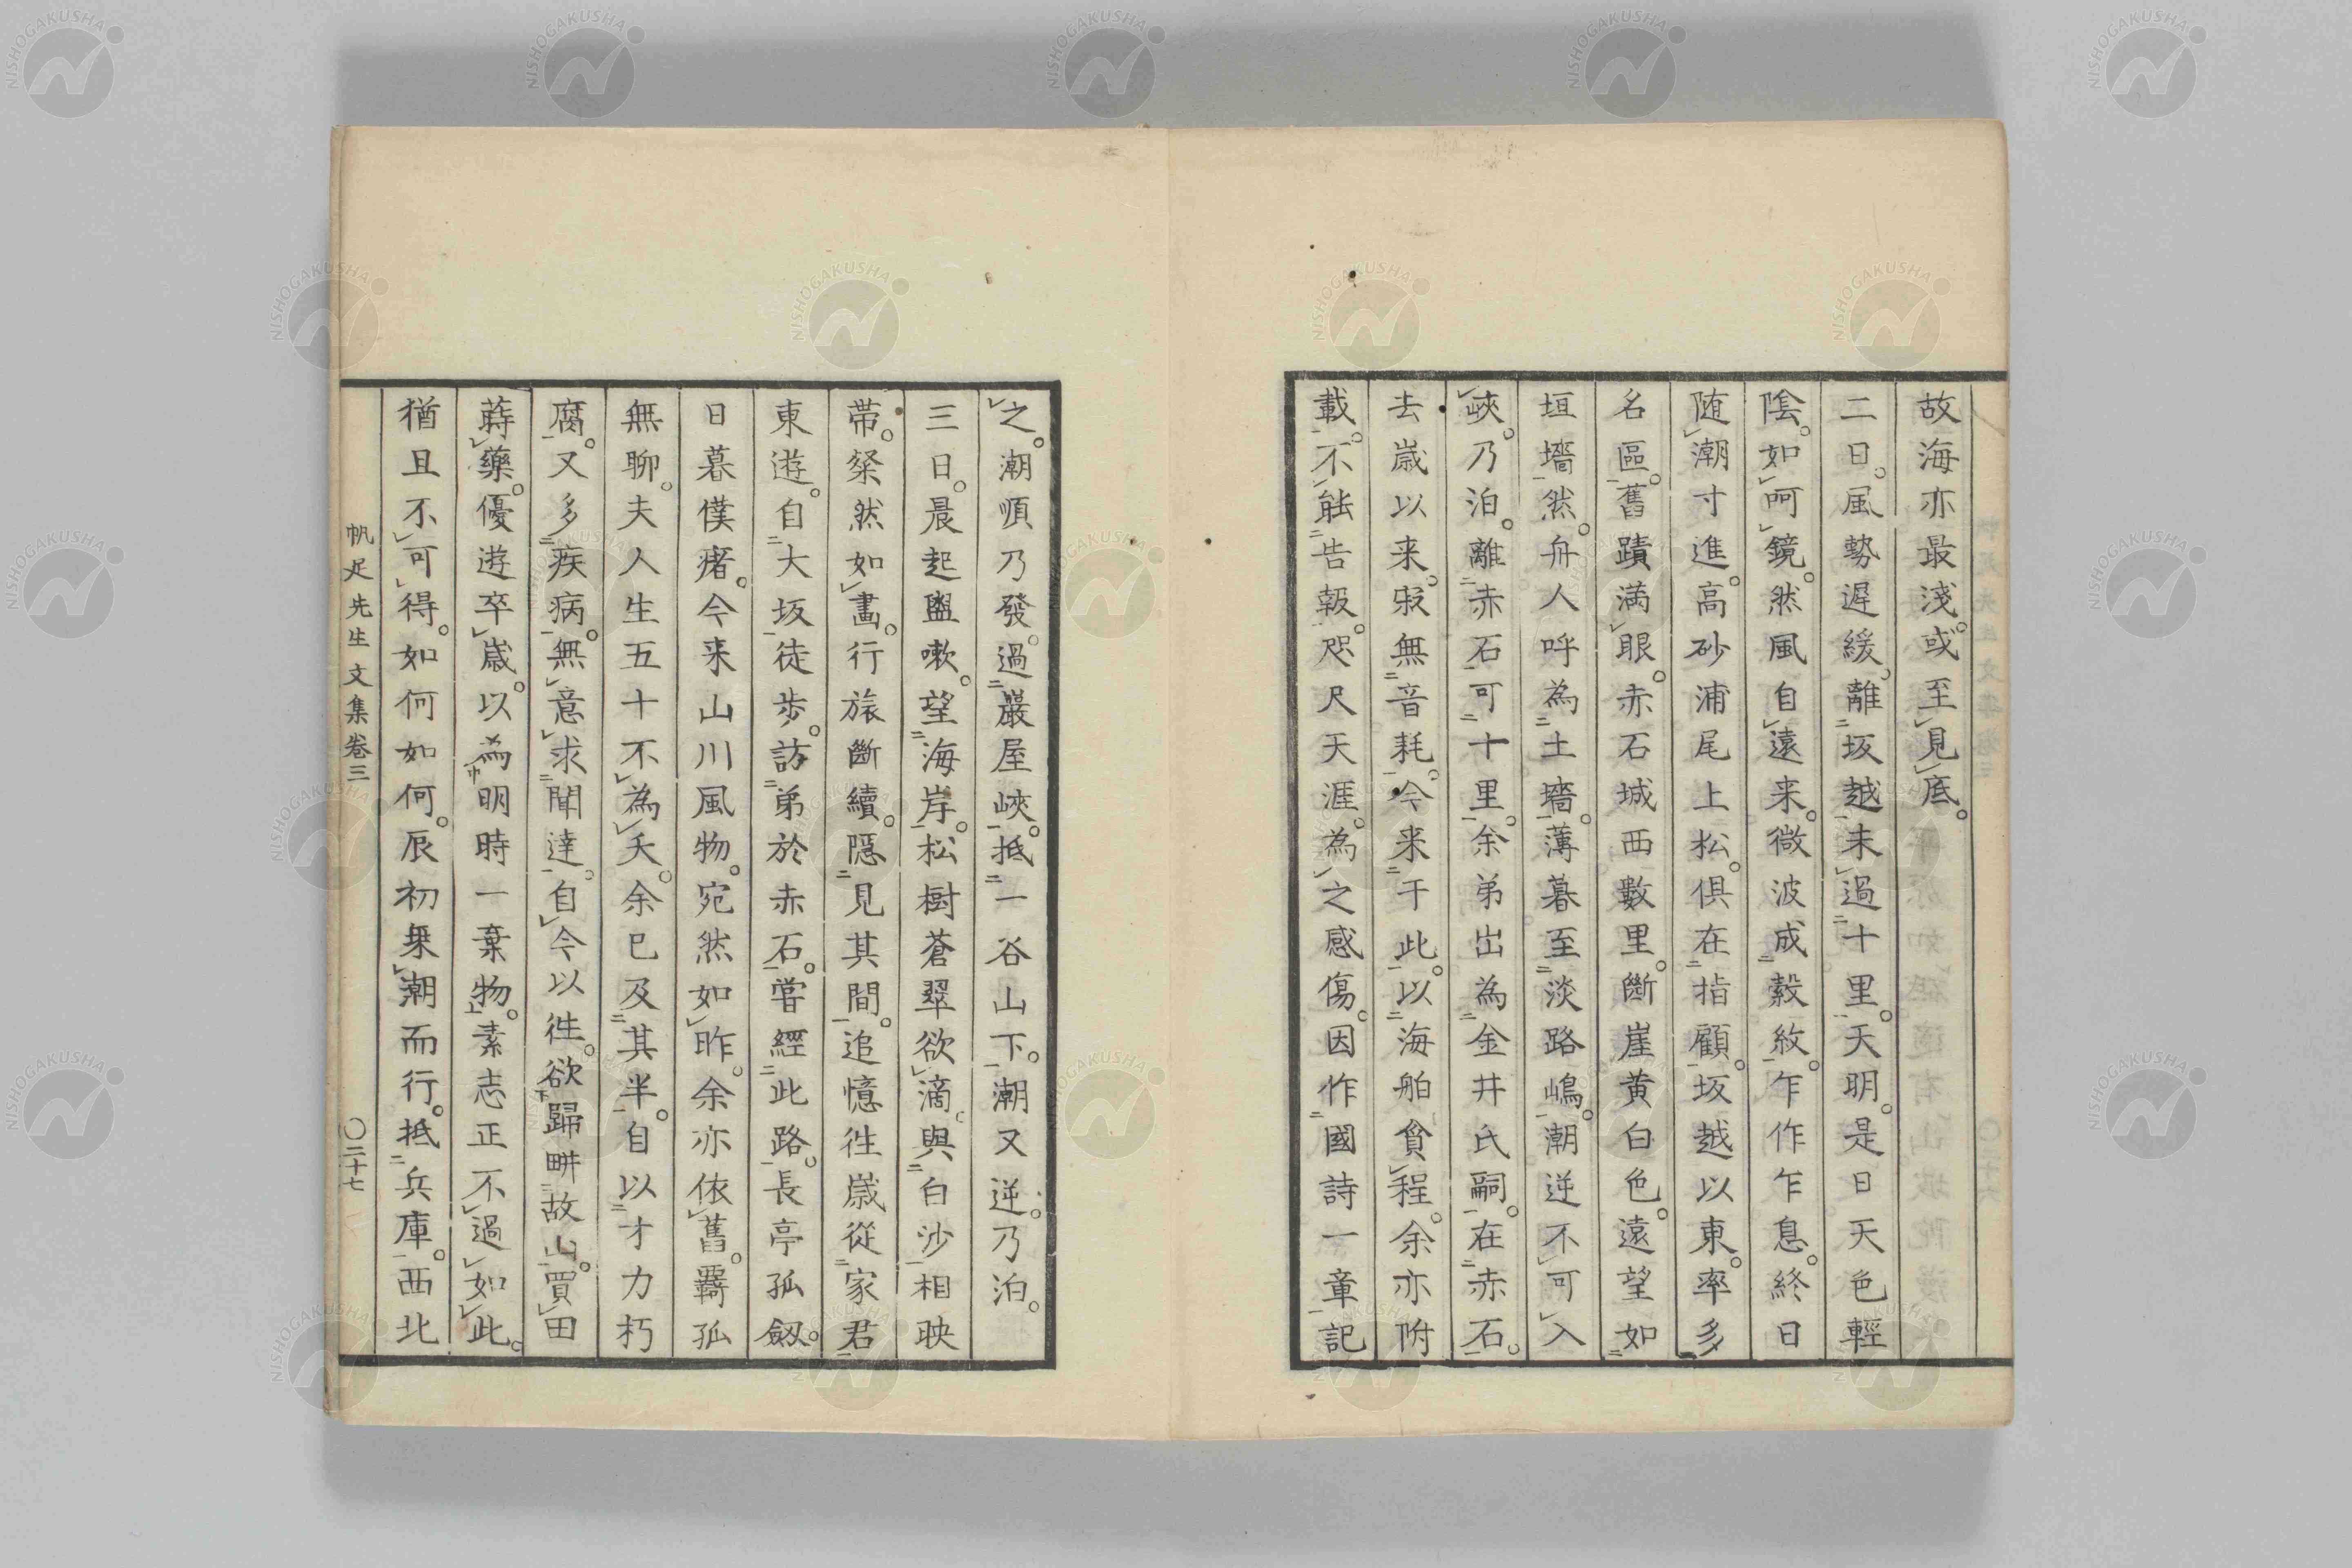 故海亦最淺。或至見底。
二日。風勢遲緩。離坂越未過十里。天明。是日天色輕
陰。如呵鏡。然風自遠来。微波成縠紋。乍作乍息。終日
随潮寸進。高砂浦尾上松。俱在指顧。坂越以東。率多
名區。舊蹟満眼。赤石城西數里。斷崖黄白色。遠望如
垣墻然。舟人呼為土墻。薄暮至淡路嶋。潮逆不可入
峽。乃泊。離赤石可十里。余弟出為金井氏嗣。在赤石。
去歳以来。寂無音耗。今来干此。以海舶貪程。余亦附
載。不能告報。咫尺天涯。為之感傷。因作國詩一章記
之。潮順乃發。過巖屋峽。抵一谷山下。潮又逆。乃泊。
三日。晨起盥嗽。望海岸。松樹蒼翠欲滴。與白沙相映
帯。粲然如畫。行旅斷續。隠見其間。追憶徃歳從家君
東遊。自大坂徒歩。訪弟於赤石。嘗經此路。長亭孤劔。
日暮僕瘏。今来山川風物。宛然如昨。余亦依舊。羇孤
無聊。夫人生五十不為夭。余已及其半。自以才力朽
腐。又多疾病。無意求聞達。自今以徃。欲歸畊故山。買田
蒔藥。優遊卒歳。以為明時一棄物。素志正不過如此。
猶且不可得。如何如何。辰初乗潮而行。抵兵庫。西北
帆足先生文集卷三
〇二十七
NISHOGAKUSHA